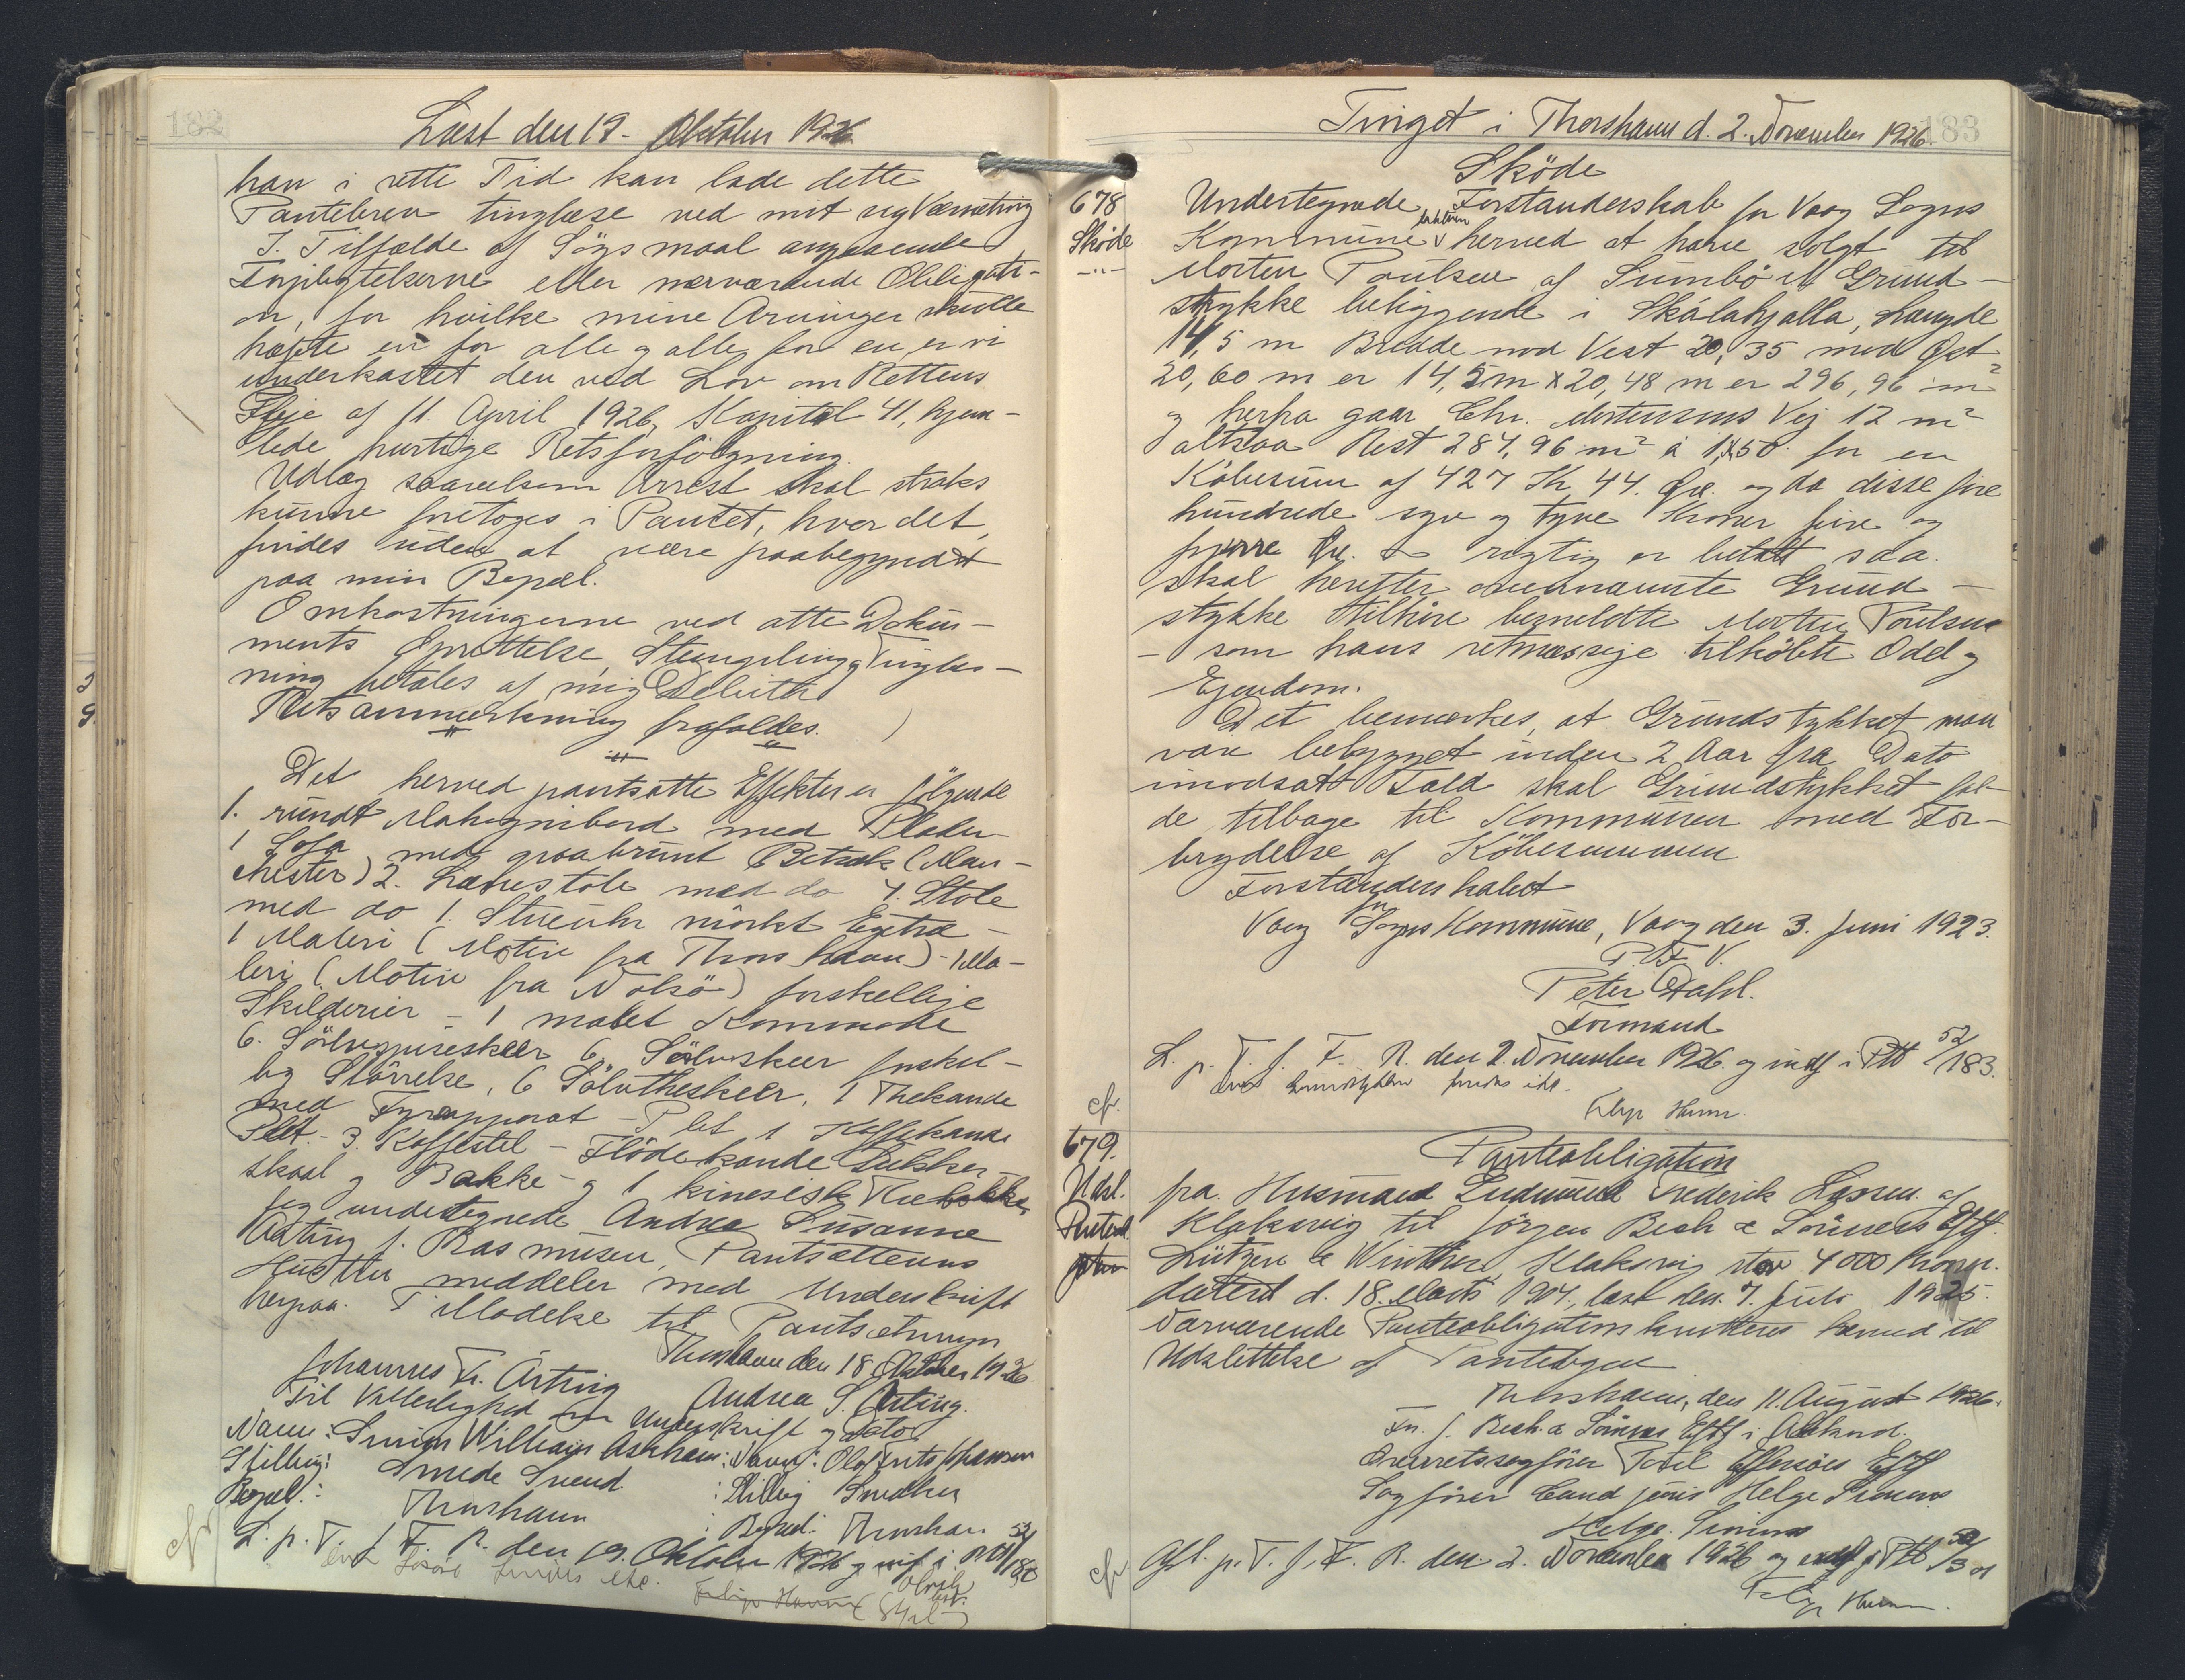 182
Læst den 19. Oktober 1926.
han i rette Tid kan lade dette
Pantebrev tinglæse ved mit ny Værneting
I Tilfælde af Søgsmaal angaaende
Forpligtelserne eller nærværende Obligati-
on, for hvilke mine Arvinger skulle
hæfte en for alle og alle for en, er vi
underkastet den ved Lov om Rettens
Pleje af 11. April 1926, Kapitel 41, hjem-
lede hurtige Retsforfölgning.
Udlæg saavelsom Arrest skal straks
kunne foretages i Pantet, hvor det
findes uden at være paabegyndt
paa min Bopæl.
Omkostningerne ved dette Doku-
ments Oprettelse, Stempling og Tinglæs-
ning betales af mig Debitor
Retsanmærkning frafaldes.
Det herved pantsatte Effekter er fölgende
1. rundt Mahognibord med Plade
1 Sofa med graabrunt Betræk (Man-
chester) 2. Lænestole med do 4. Stole
med do 1. Stueuhr mörkt Egetræ -
1 Maleri (Motiv fra Thorshavn) - 1 Ma-
leri (Motiv fra Nolsö) forskellige
Skilderier - 1 malet Kommode
6. Sölvspiseskeer 6. Sölvskeer forskel-
lig Störrelse, 6 Sölvtheskeer, 1 Thekande
med Fyrapparat - Plet 1 Kaffekande
Plet. - 3. Kaffestel - Flödekande Sukker-
skaal og Bakke - og 1 kinesisk Thebakke
Jeg undertegnede Andrea Susanne
Arting f. Rasmusen, Pantsætterens
Hustru meddeler med Underskrift
herpaa Tilladelse til Pantsætningen
Thorshavn den 18 Oktober 1926
Johannes Fr. Arting Andrea S. Arting.
Til Vitterlighed om Underskrift og Dato
Navn: William Askham: Navn: Olof Johansen
Stilling: Smede Svend. : Stilling Snedker
Bopæl: Thorshavn : Bopæl: Thorshavn
L. p. T. f. F. R. den 19. Oktober 1926 og indf i Ptb 52/180
over Lösöre findes ikke.
cfr
183
Tinget i Thorshavn d. 2. November 1926.
Sköde
678
Sköde
Undertegnede Forstanderskab for Vaag Sogns
Kommune bekender herved at have solgt til
Morten Poulsen af Sumbö et Grund-
stykke beliggende i Skálahjalla, Længde
14,5 m Bredde mod Vest 20,35 mod Öst
20,60 m er 14,5m x 20,48 m er 296,96 m²
og herfra gaar Chr. Mortensens Vej 12 m²
altsaa Rest 284,96 m² á 1,50 for en
Köbesum af 427 Kr 44. Öre. og da disse fire
hundrede syv og tyve Kroner fire og
fyrre Öre. rigtig er betalt saa
skal herefter ovennævnte Grund-
stykke tilhöre bemeldte Morten Poulsen
- som hans retmæssige tilköbte Odel og
Ejendom.
Det bemærkes, at Grundstykket maa
være bebygget inden 2 Aar fra Dato
imodsat Fald skal Grundstykket fal-
de tilbage til Kommunen med For-
brydelse af Köbesummen
Forstanderskabet
for
Vaag Sogns Kommune, Vaag den 3. Juni 1923.
P. F. V.
Peter Dahl.
Formand
L. p. T. f. F. R. den 2. November 1926. og indf i Ptb 52/183.
over Grundstykket findes ikke.
cfr.
679.
Udsl.
Panteobligation
fra Husmand Frederik Lassen af
Klaksvig til Jörgen Bech & Sönners Eftf.
Lützen & Winther, Klaksvig stor 4000 Kroner.
dateret d. 18. Marts 1904, læst den 7. Juli 1925.
Nærværende Panteobligation kvitteres herved til
Udslettelse af Pantebogen
Thorshavn, den 11. August 1926.
Fr. J. Bech & Sönners Eftf i Akkord.
Overretssagförer Eftf
Sagförer Cand juris Helge
Helge
Afl. p. T. f. F. R. den 2. November 1926 og indf i Ptb
cfr